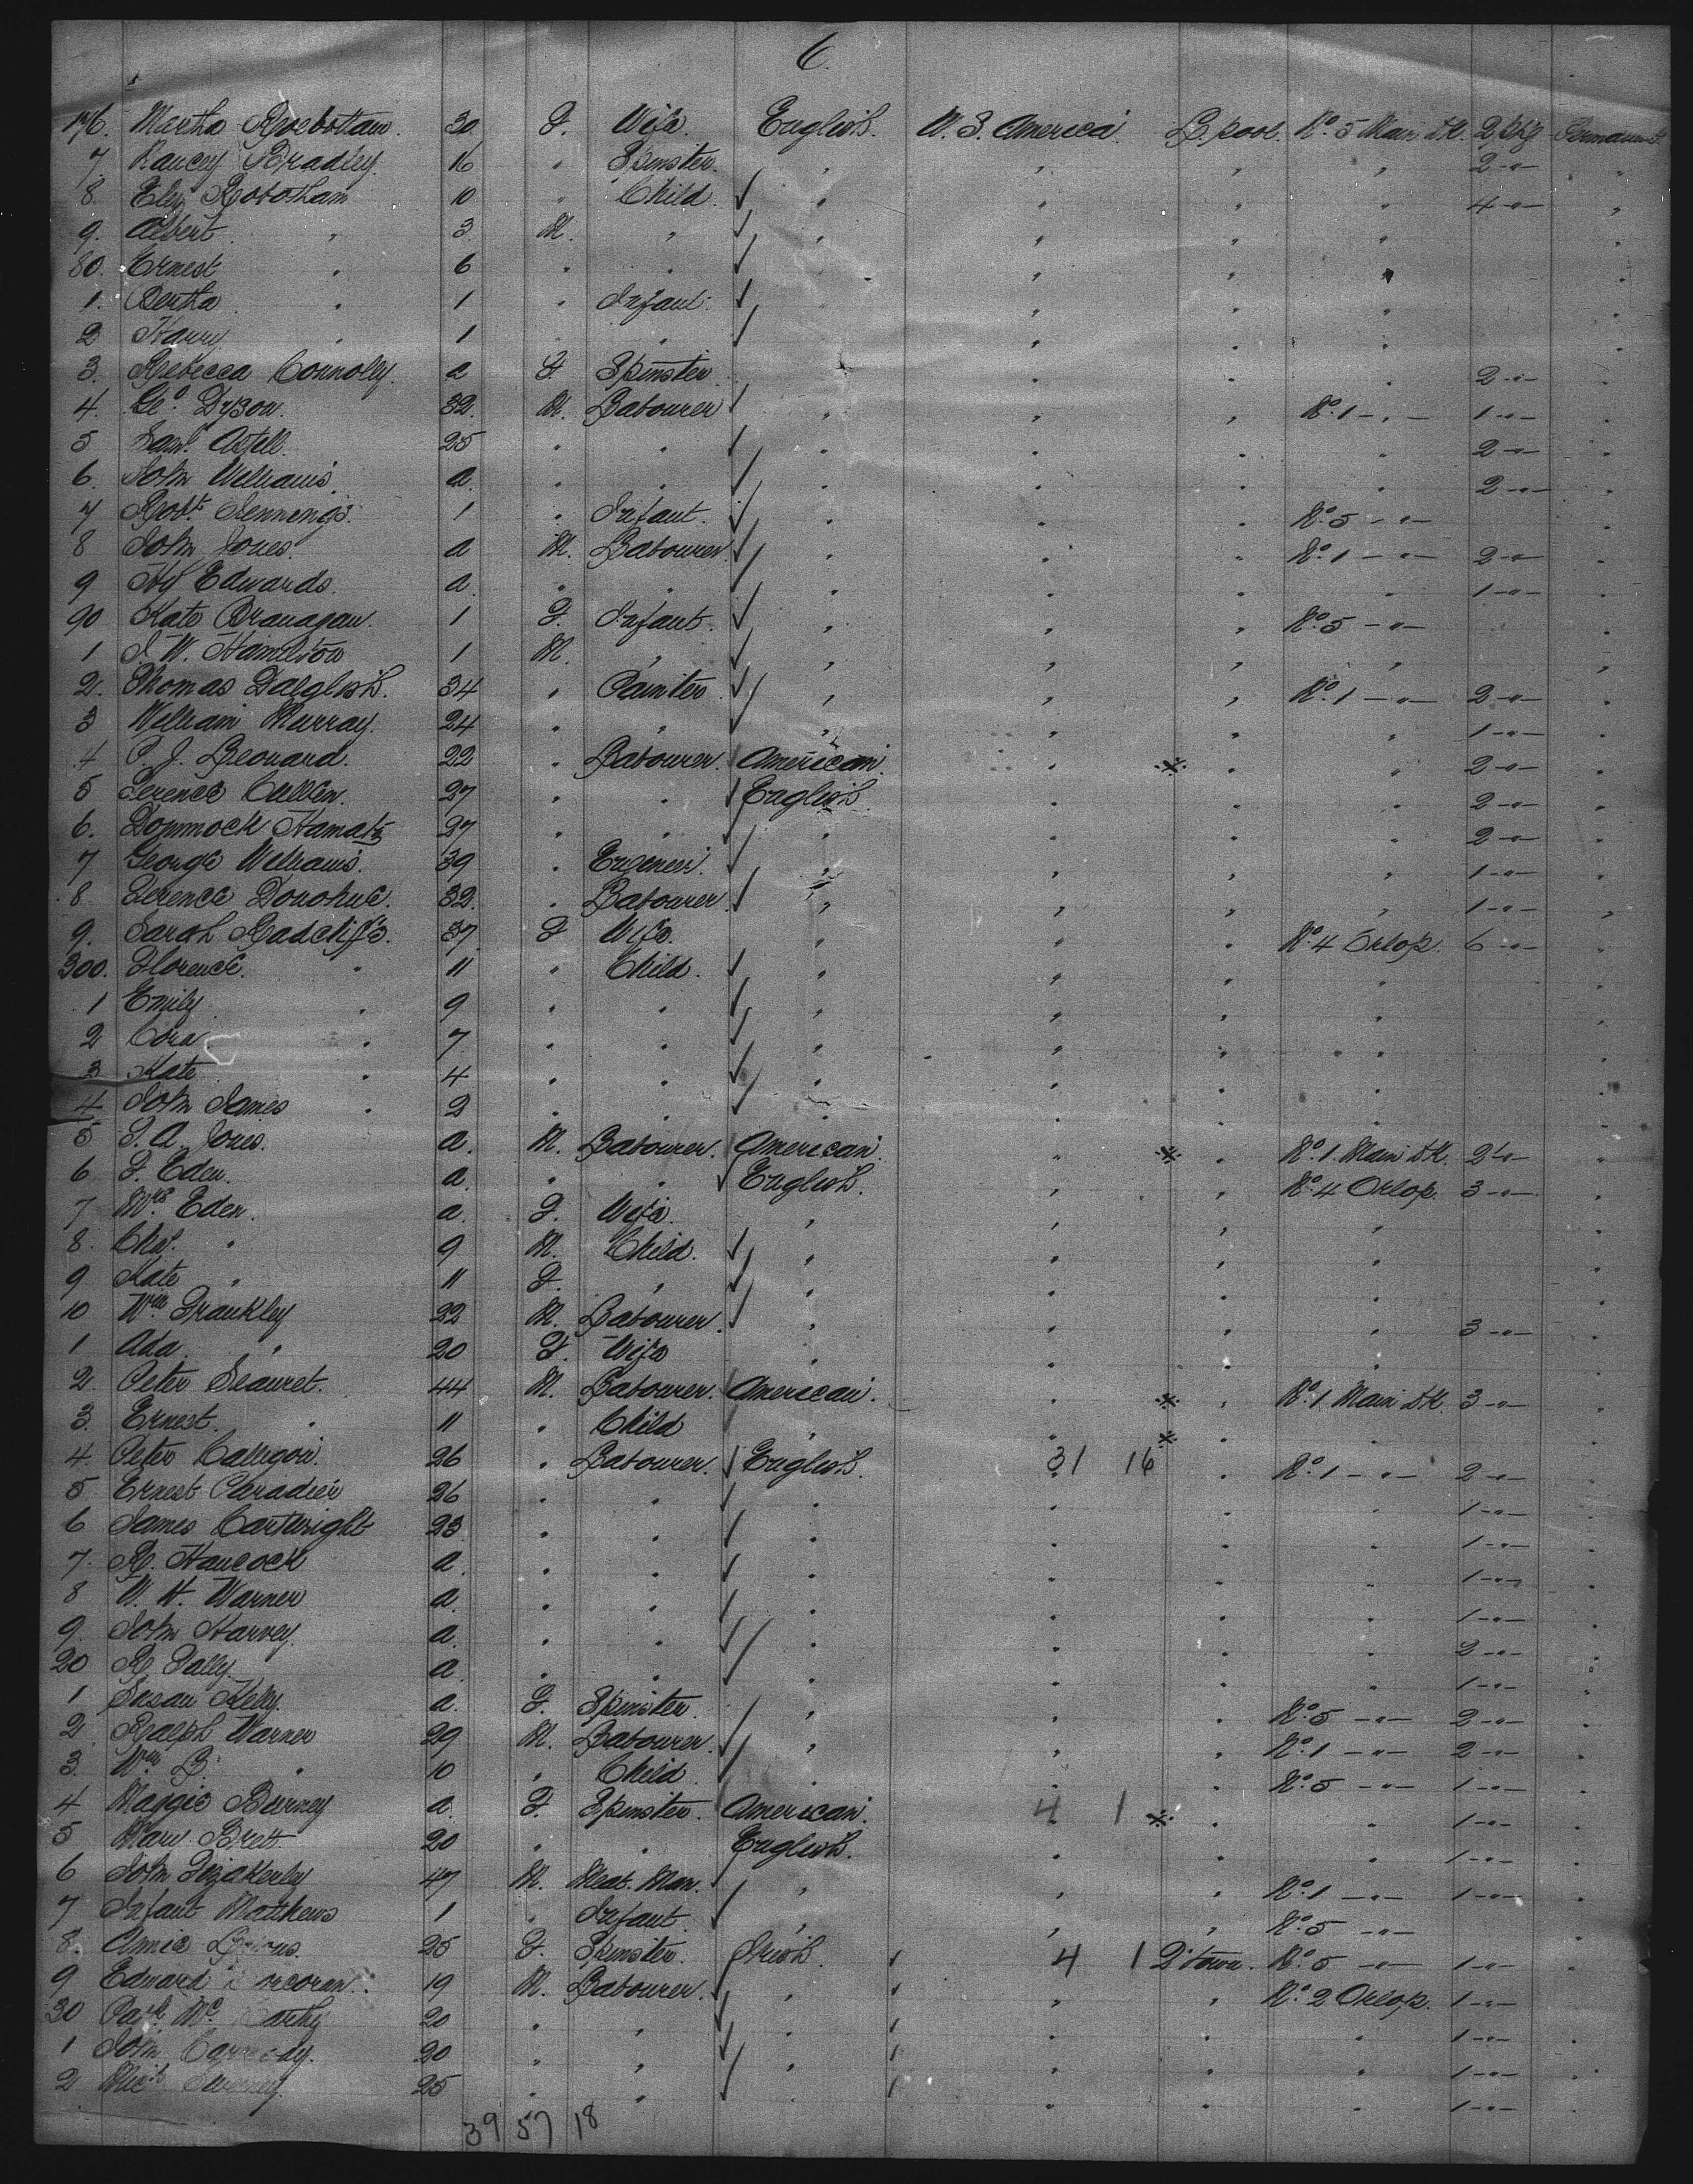 6.
176. Martha Roebottam. 30 F. Wife. English. U. S. America. L.pool. No. 5 Main dk. 2 pkg Permanent
7. Nancy Bradley. 16 " Spinster. " " " " 2 -"- "
8. Eley Robotham 10 " Child. ✓ " " " " 4 -"- "
9. Albert " 3 M. " ✓ " " " " "
80. Ernest " 6 " " ✓ " " " "
1. Bertha " 1 " Infant. ✓ " "
2 Harry " 1 " " ✓ " " " "
3. Rebecca Connolly. a F. Spinster " " " 2 -"- "
4. Geo. Dyson. 32. M. Labourer ✓ " " " No. 1 -"- 1 -"- "
5 Saml. 25 " " ✓ " " " " 2 -"- "
6. John Williams. a. " " ✓ " " " " 2 -"- "
7 Robt. Jennings. 1 " Infant. ✓ " " " No. 5 -"- "
8 John Jones. a M. Labourer ✓ " " " No. 1 -"- 2 -"- "
9 Hy Edwards. a. " " ✓ " " " " 1 -"- "
90 Kate Branagan. 1 F. Infant. ✓ " " " No. 5 -"- "
1 J. W. Hamilton 1 M. " ✓ " " " " "
2. Thomas Dalglish. 34 " Painter ✓ " " " No. 1 -"- 2 -"- "
3 William Murray. 24 " " ✓ " " " " 1 -"- "
4 P. J. Leonard. 22 " Labourer. American. " ※ " " 2 -"- "
5 Terence Cullen. 27 " " ✓ English. " " " 2 -"- "
6. Hamats 27 " " ✓ " " " " 2 -"- "
7 George Williams. 39 " Engineer. ✓ " " " " 1 -"- "
8. Terence Donohue. 32. " Labourer ✓ " " " " 1 -"- "
9. Sarah Radcliffe. 37. F Wife. " " " No. 4 Orlop. 6 -"- "
300. Florence. " 11 " Child. ✓ " " " " "
1 Emily " 9 " " ✓ " " " " "
2 Cora " 7. " " ✓ " " " " "
3 Kate " 4 " " ✓ " " " " "
4 John James " 2 " " ✓ " " " " "
5 a. M. Labourer. American. " ※ " No. 1. Main dk. 2 -"- "
6 F. Eden. a. " " ✓ English. " " No. 4 Orlop. 3 -"- "
7 Mrs. Eden. a. F. Wife. " " " " "
8. Chas. " 9 M. Child. ✓ " " " " "
9 Kate " 11 F. " ✓ " " " " "
10 Wm Frankley 22 M. Labourer. ✓ " " " " 3 -"- "
1 Ada. " 20 F. Wife " " " " "
2. Peter 44 M. Labourer. American. " ※ " No. 1 Main dk. 3 -"- "
3. Ernest. " 11 " Child " " ※ " " "
4. Peter 26 " Labourer. ✓ English. 31 16 " No. 1 -"- 2 -"- "
5 Ernest Paradier 26 " " ✓ " " " " 1 -"- "
6 James Cartwright 23 " " ✓ " " " " 1 -"- "
7. R. Hancock a. " " ✓ " " " " 1 -"- "
8 W. H. Warner a. " " ✓ " " " " 1 -"- "
9. John Harvey. a. " " ✓ " " " " 2 -"- "
20 R. a. " " ✓ " " " " 1 -"- "
1 Susan Kelly. a. F. Spinster. " " " No. 5 -"- 2 -"- "
2 Ralph Warner 29 M. Labourer. ✓ " " " No. 1 -"- 2 -"- "
3. Wm B. " 10 " Child. ✓ " " " No. 5 -"- 1 -"- "
4 Maggie Burney a. F. Spinster. American. 4 1 ※ " " 1 -"- "
5 Mary Brett 20 " " English. " " " 1 -"- "
6 John 47 M. Meat. Man. ✓ " " " No. 1 -"- 1 -"- "
7 Infant Matthews 1 " Infant. ✓ " " " No. 5 -"- "
8. Annie Lyons. 25 F. Spinster. Irish. ✓ 4 1 Q'town. No. 5 -"- 1 -"- "
9 Edward Corcoran. 19 M. Labourer. ✓ " ✓ " " No. 2 Orlop. 1 -"- "
30 Patk. Mc Carthy 20 " " ✓ " ✓ " " " 1 -"- "
1 John 20 " " ✓ " ✓ " " " 1 -"- "
2 Michl. Sweeney. 25 " " ✓ ✓ " " " 1 -"- "
39 57 18